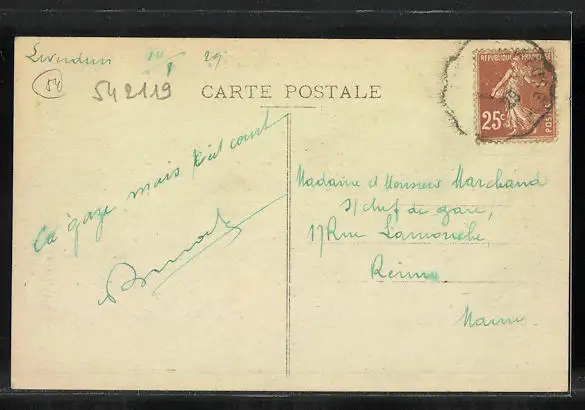 29
54
542119
CARTE POSTALE
REPUBLIQUE FRANÇAISE
25c
POSTES
Ca gaze mais il est court
Madame et Monsieur Marchand
s/chef de gare,
17 Rue
Reims
Marne.